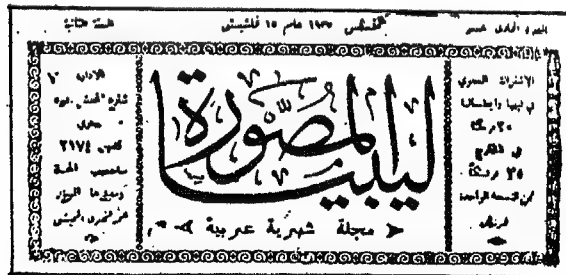 العدد الحادي عشر
أغسطس ١٩٣٧ عام ١٥ فاشيستي
السنة الثانية
الاشتراك السنوي
في ليبيا وايطاليا
٣٠ فرنكا
في الخارج
٣٥ فرنكا
ثمن النسخة الواحدة
ليبيا المصورة
مجلة شهرية عربية
الادارة
تليفون ٢١٧٤
صاحب المجلة
ومديرها المسؤول
عمر فخري المحيشي